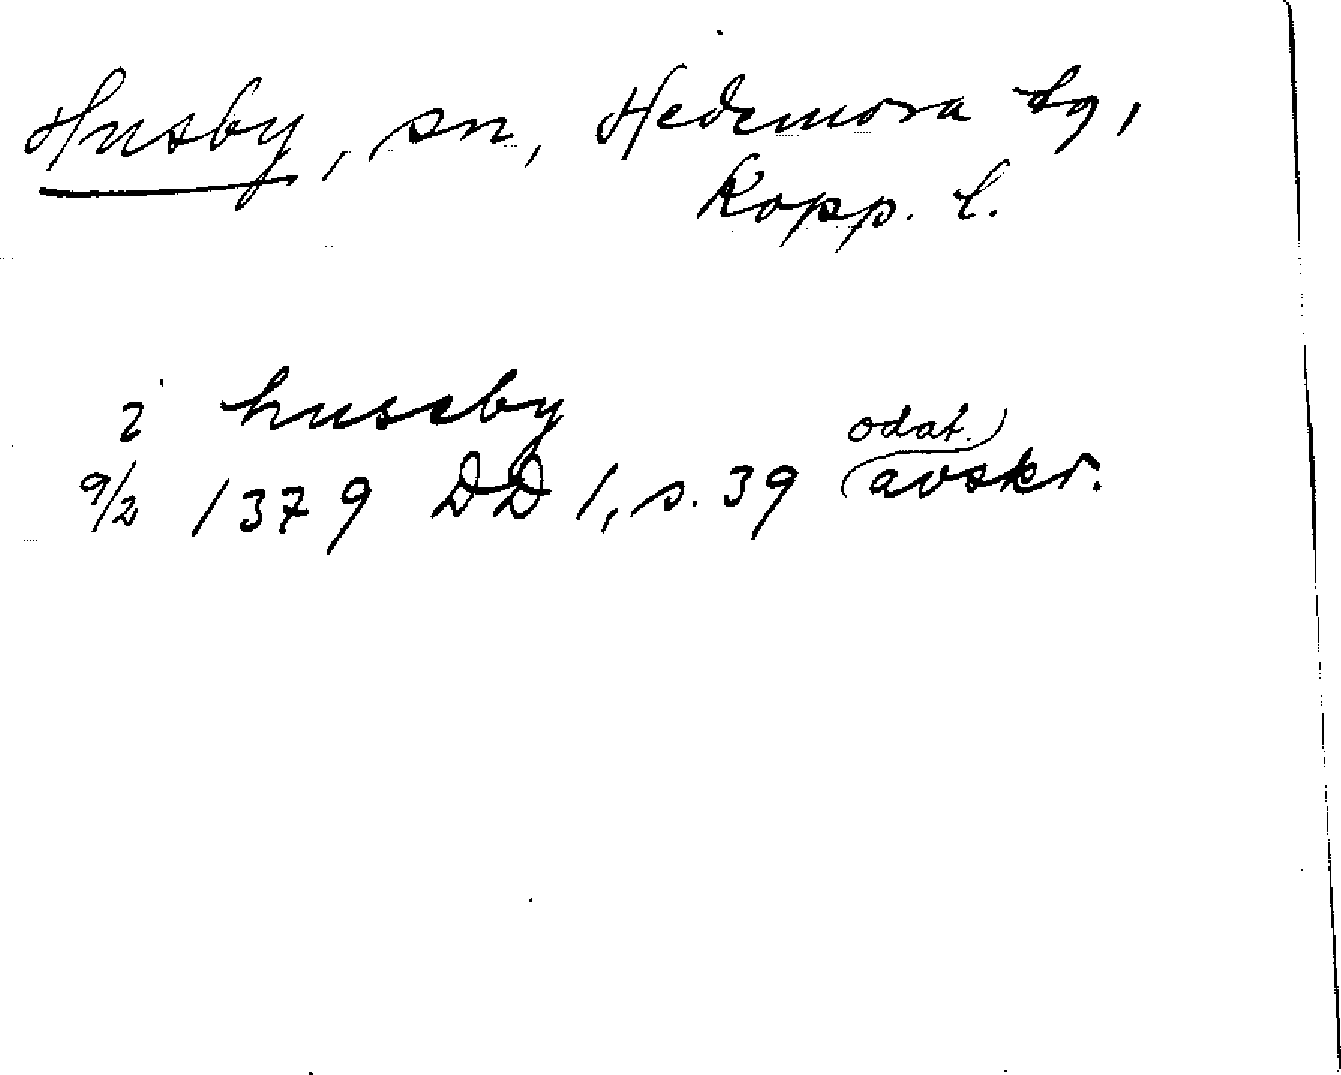 Husby, sn, Hedemora tg,
Kopp. l.
i huseby
odat.
9/2 1379 DD 1, s. 39 avskr.